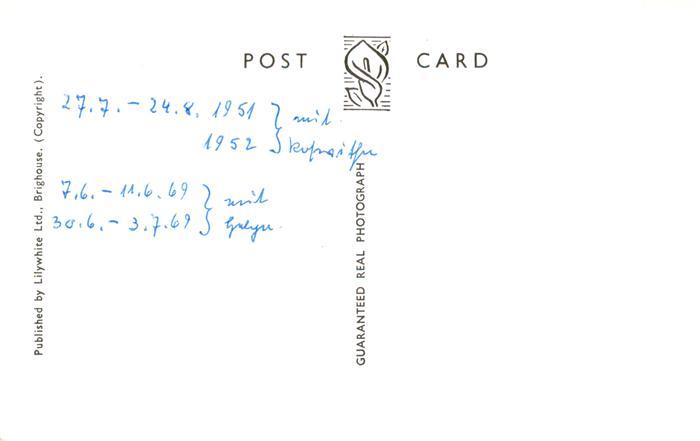 POST CARD
27.7. – 24.8. 1951 } mit
1952 }
7.6. – 11.6.69 } mit
30.6. – 3.7.69 }
Published by Lilywhite Ltd., Brighouse. (Copyright).
GUARANTEED REAL PHOTOGRAPH